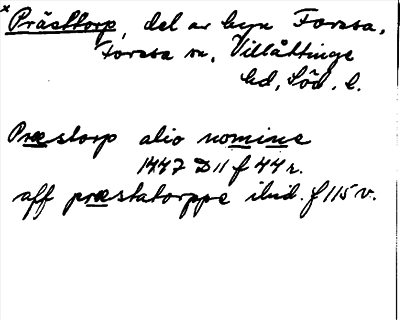 x Prästtorp, del av byn Forssa,
Forssa sn, Villåttinge
hd, Söd. l.
Præstorp alio nomine
1447 D 11 f 44 r.
aff præstatorppe ibid. f 115 v.